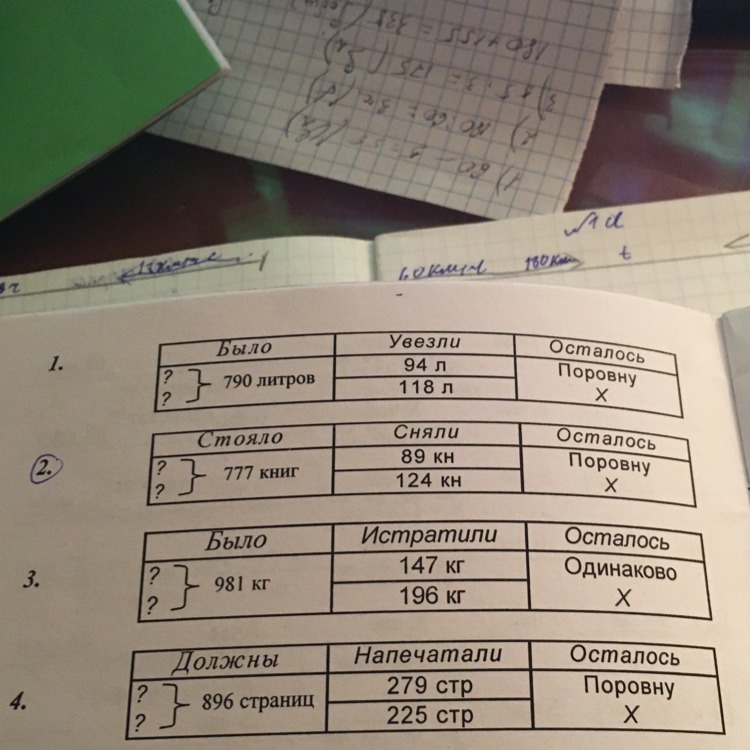 180 + 155 = 335
3)
2)
1)
№1 d
60 км/ч 180 км t
1.
Было Увезли Осталось
? ? 790 литров 94 л Поровну
118 л X
2.
Стояло Сняли Осталось
? ? 777 книг 89 кн Поровну
124 кн X
3.
Было Истратили Осталось
? ? 981 кг 147 кг Одинаково
196 кг X
4.
Должны Напечатали Осталось
? ? 896 страниц 279 стр Поровну
225 стр X